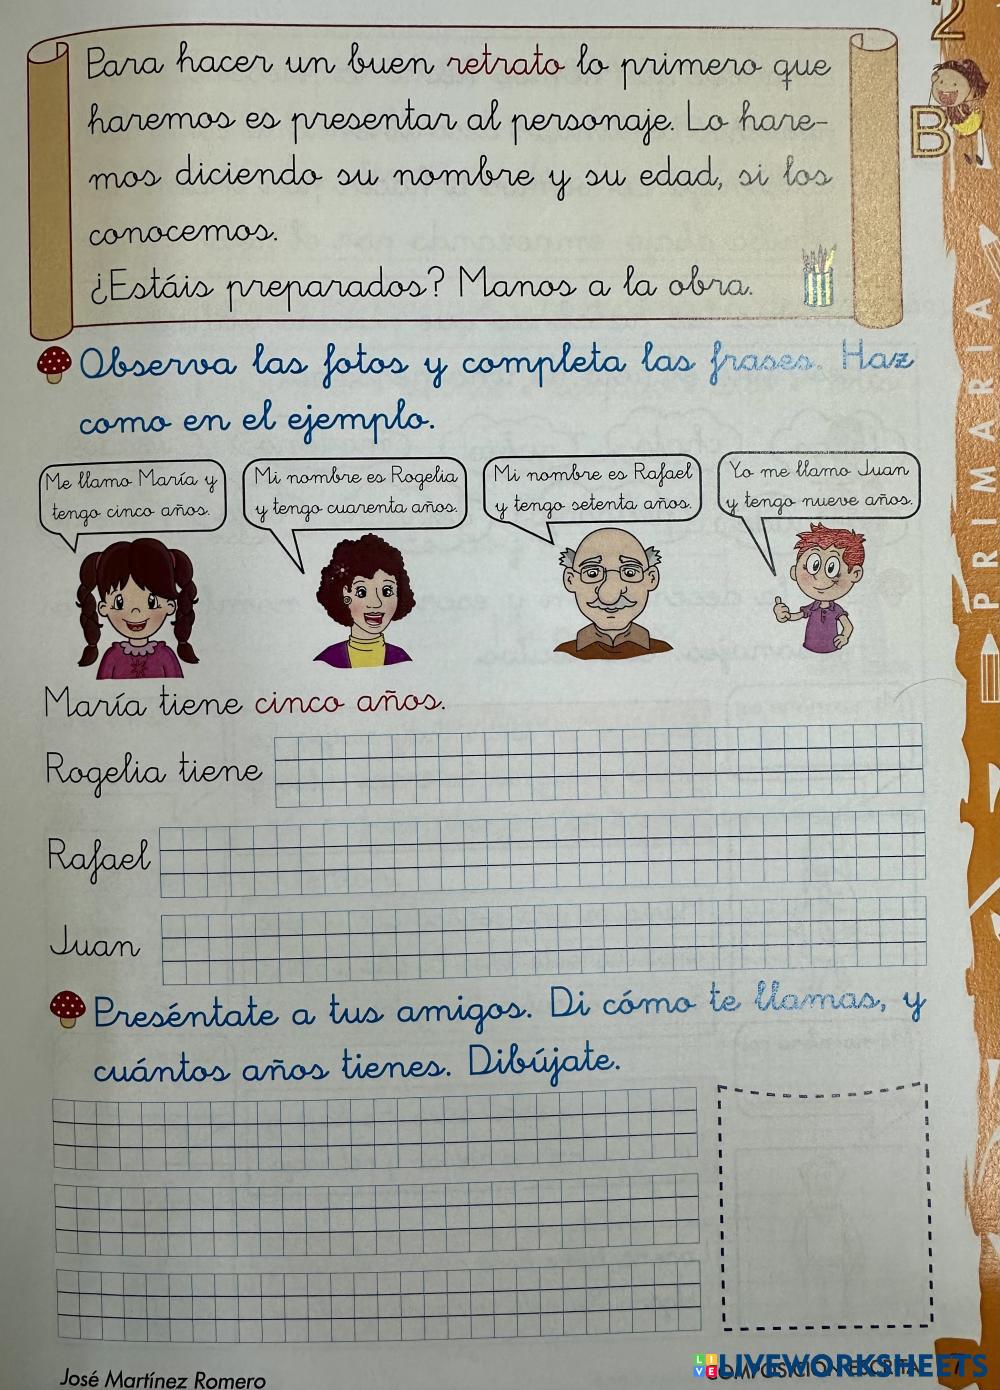 2
B
Para hacer un buen retrato lo primero que
haremos es presentar al personaje. Lo hare-
mos diciendo su nombre y su edad, si los
conocemos.
¿Estáis preparados? Manos a la obra.
PRIMARIA
Observa las fotos y completa las frases. Haz
como en el ejemplo.
Me llamo María y
tengo cinco años.
Mi nombre es Rogelia
y tengo cuarenta años.
Mi nombre es Rafael
y tengo setenta años.
Yo me llamo Juan
y tengo nueve años.
María tiene cinco años.
Rogelia tiene
Rafael
Juan
Preséntate a tus amigos. Di cómo te llamas, y
cuántos años tienes. Dibújate.
José Martínez Romero
COMPOSICIÓN ESCRITA 7
LIVEWORKSHEETS